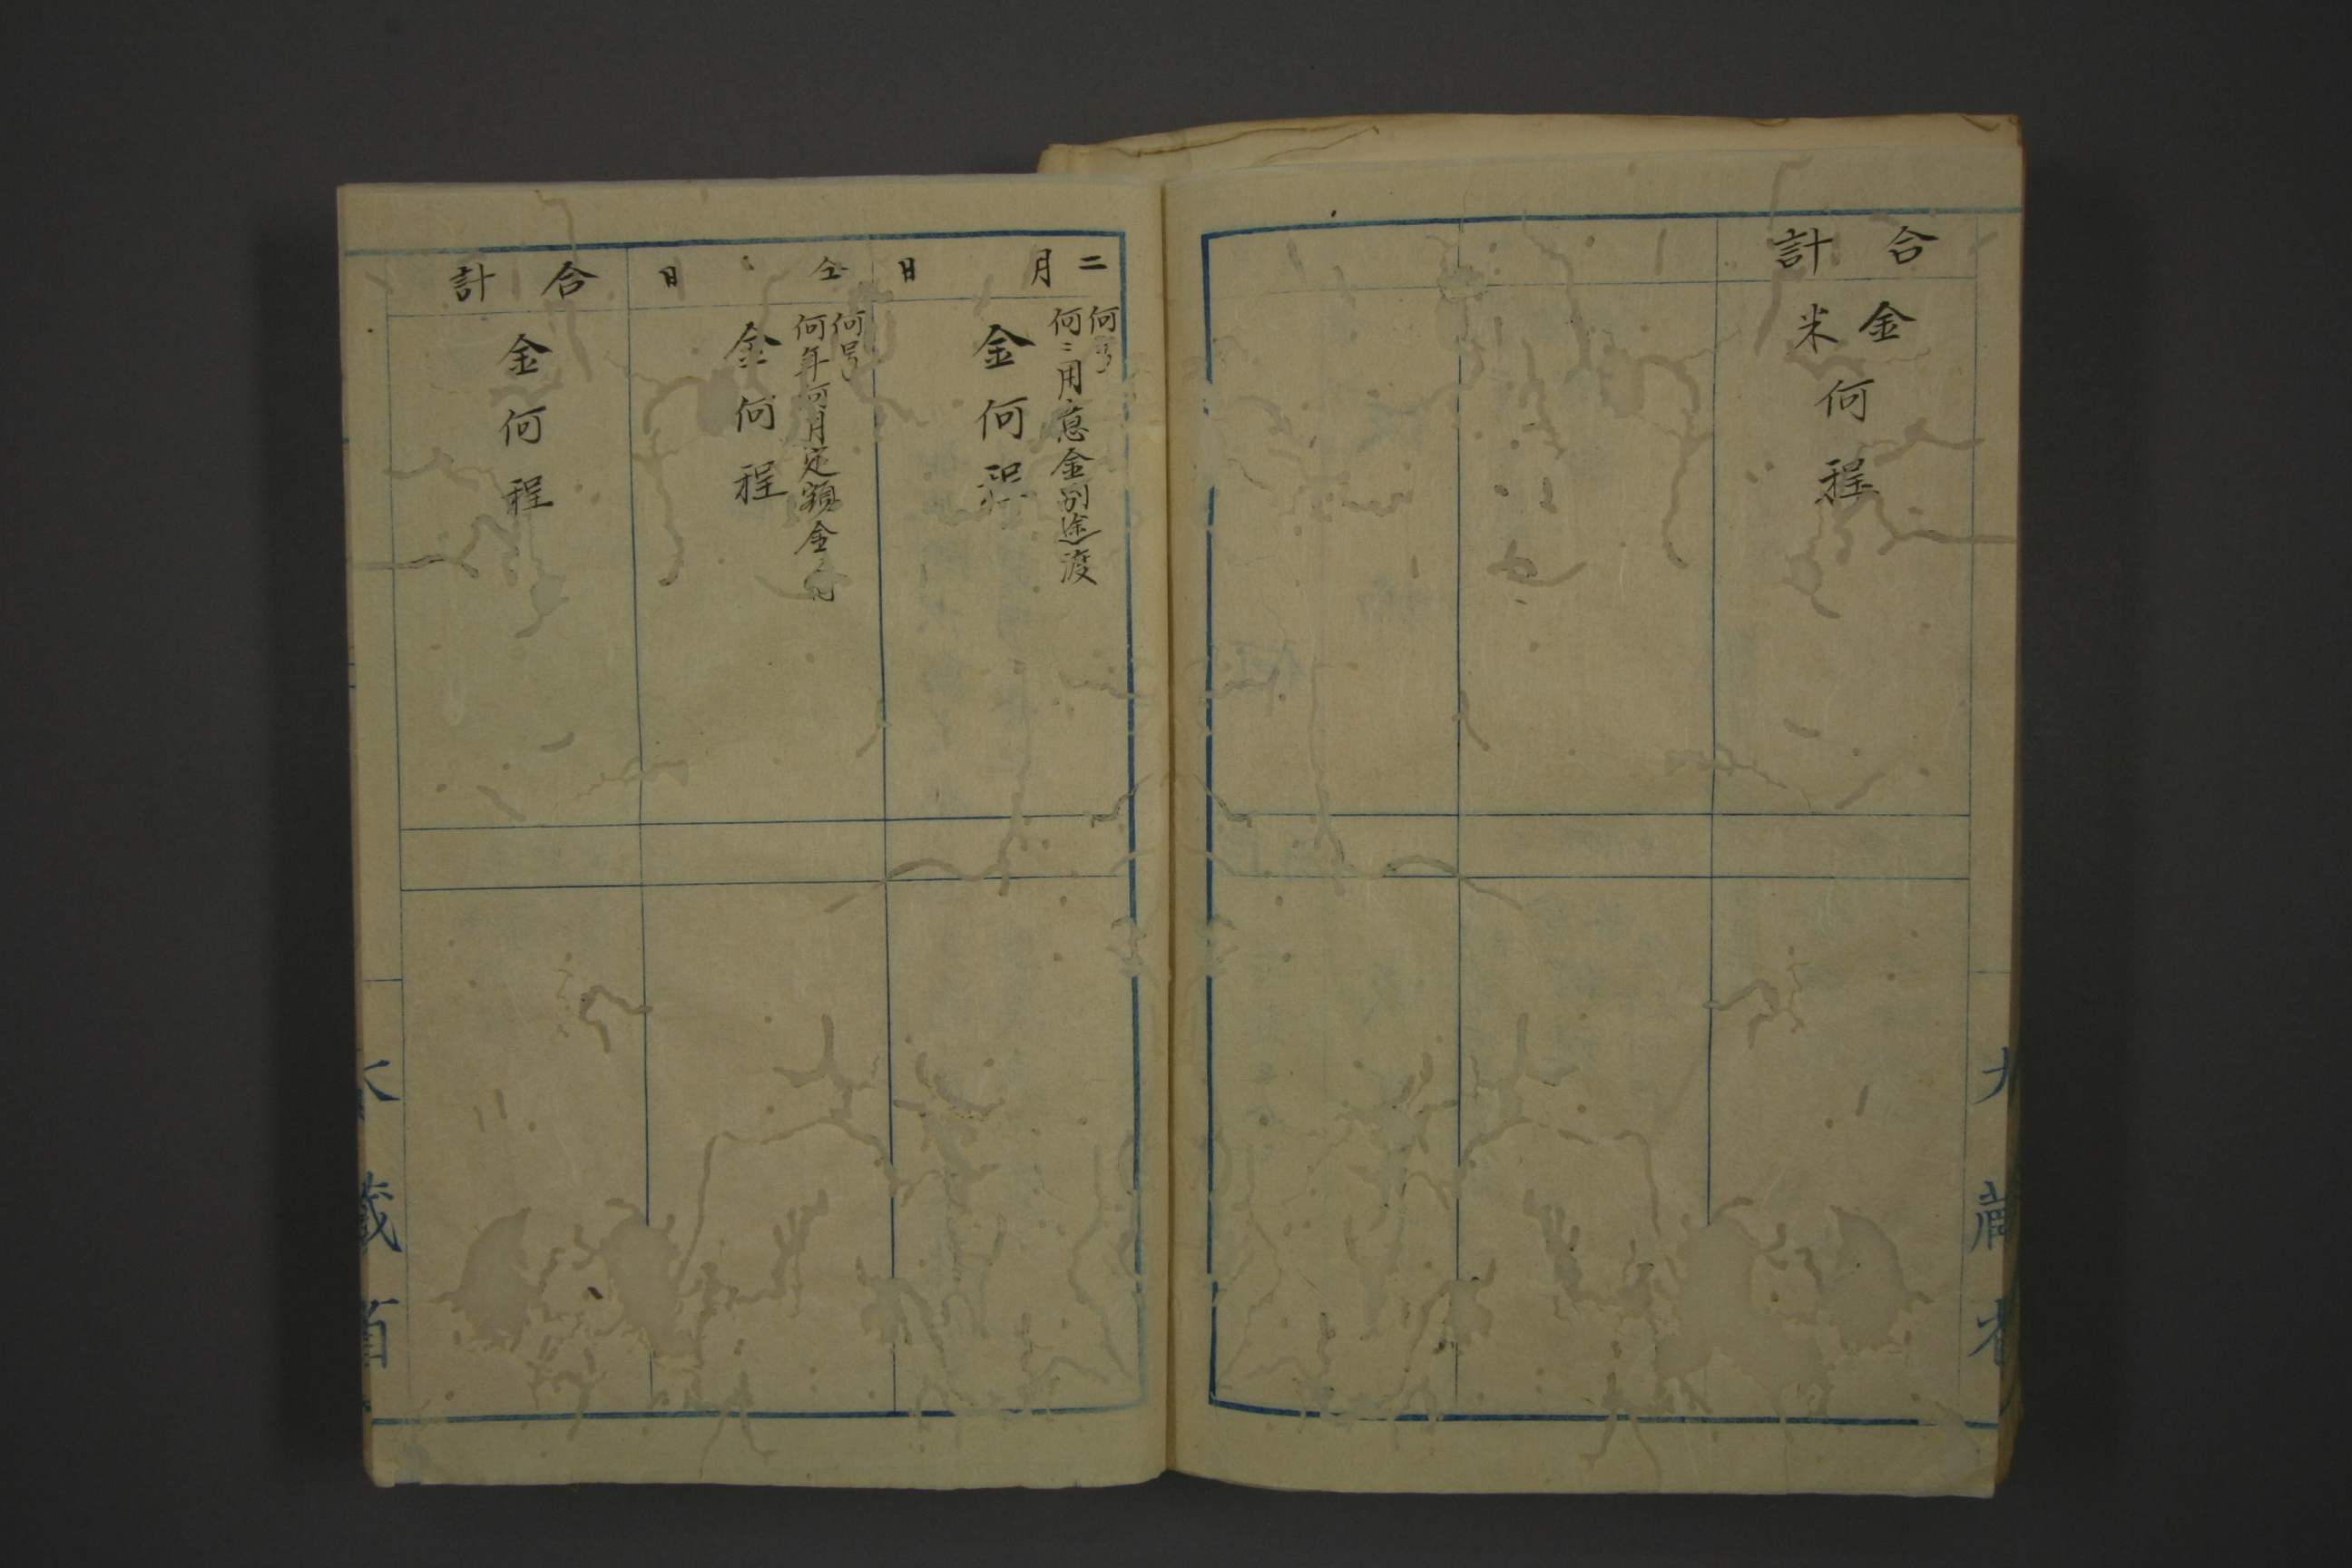 合計
金
米
何程
大藏省
二月 日
何号
何〻用意金別途渡
金何程
仝 日
何号
何年何月定額金
金何程
合計
金何程
大藏省